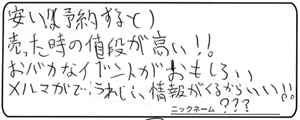 安い!(予約すると)
売った時の値段が高い!!
おバカなイベントがおもしろい
メルマガがで、うれしい、情報がくるからいい!!
ニックネーム ???